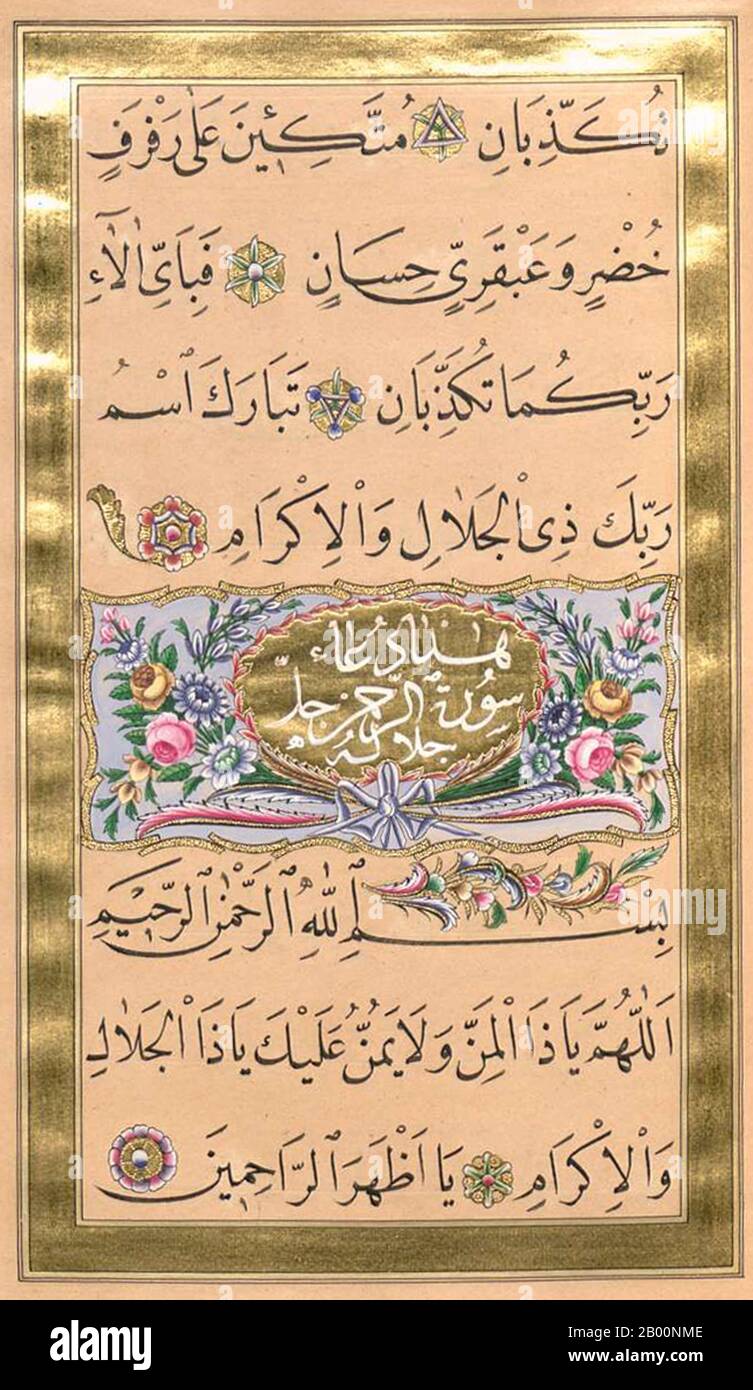 تُكَذِّبَانِ مُتَّكِئِينَ عَلٰى رَفْرَفٍ
خُضْرٍ وَعَبْقَرِىٍّ حِسَانٍ فَبِاَىِّ اٰلَاۤءِ
رَبِّكُمَا تُكَذِّبَانِ تَبَارَكَ اسْمُ
رَبِّكَ ذِى الْجَلَالِ وَالْاِكْرَامِ
هٰذَا دُعَاء
سُورَةِ الرَّحْمٰن جلّ
جلاله
بِسْمِ اللّٰهِ الرَّحْمٰنِ الرَّحِيمِ
اَللّٰهُمَّ يَا ذَا الْمَنِّ وَلَا يَمُنُّ عَلَيْكَ يَا ذَا الْجَلَالِ
وَالْاِكْرَامِ يَا اَظْهَرَ الرَّاحِمِينَ
alamy
Image ID: 2B00NME
www.alamy.com